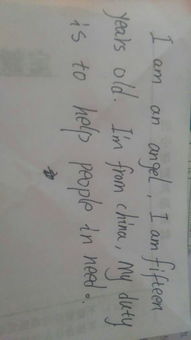 I am an angel, I am fifteen
years old. I'm from china, my duty
is to help people in need.